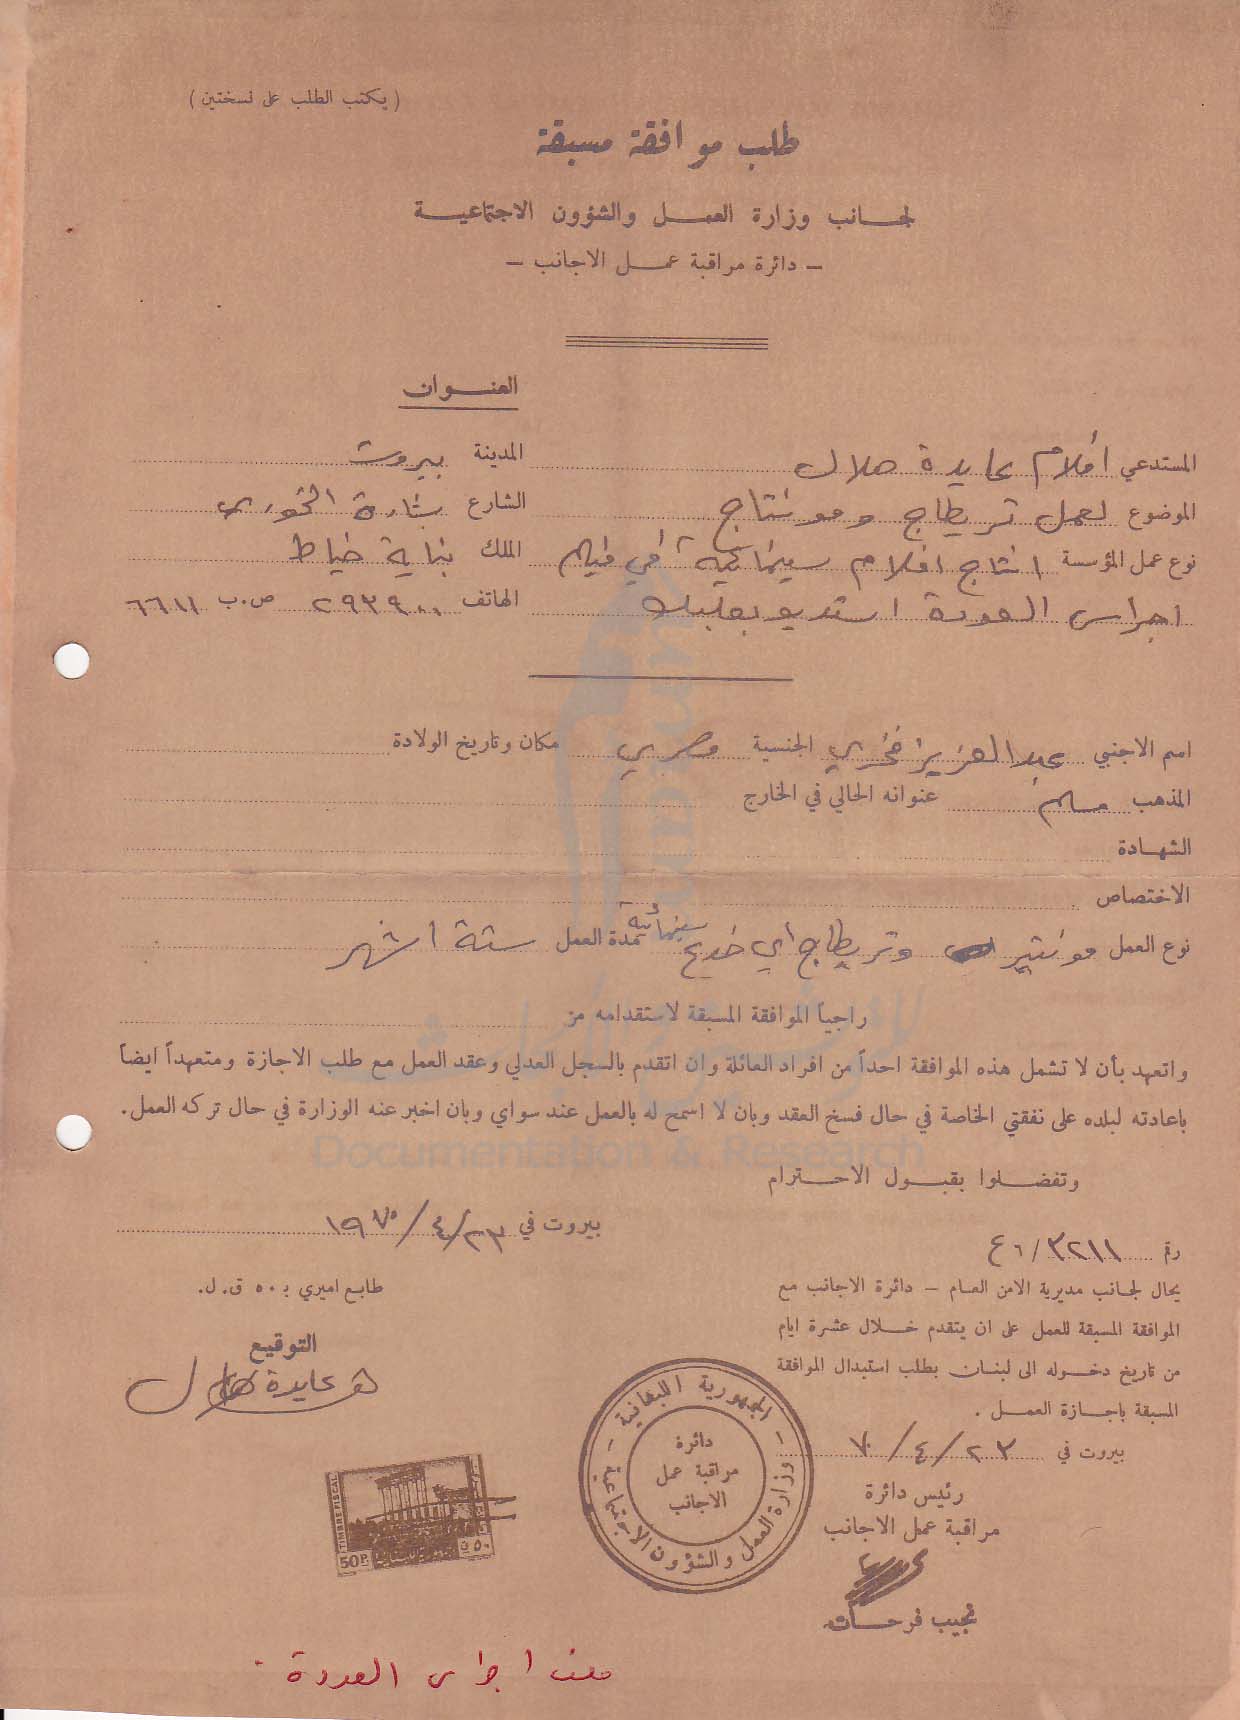 ( يكتب الطلب على نسختين )
طلب موافقة مسبقة
لجانب وزارة العمل والشؤون الاجتماعية
– دائرة مراقبة عمل الاجانب –
العنوان
المستدعي افلام عايدة هلال المدينة بيروت
الموضوع لعمل تريطاج ومونتاج الشارع بشارة الخوري
نوع عمل المؤسسة انتاج افلام سينمائية في فيلم الملك بناية خياط
اجراس العودة استديو بعلبك الهاتف ٢٩٣٩٠٠ ص.ب ٦٦١١
اسم الاجنبي عبد العزيز فخري الجنسية مصري مكان وتاريخ الولادة
المذهب مسلم عنوانه الحالي في الخارج
الشهادة
الاختصاص
نوع العمل مونتير وتريطاج اي خدع سينمائية مدة العمل ستة اشهر
راجياً الموافقة المسبقة لاستقدامه من
واتعهد بأن لا تشمل هذه الموافقة احداً من افراد العائلة وان اتقدم بالسجل العدلي وعقد العمل مع طلب الاجازة ومتعهداً ايضاً
باعادته لبلده على نفقتي الخاصة في حال فسخ العقد وبان لا اسمح له بالعمل عند سواي وبان اخبر عنه الوزارة في حال تركه العمل.
Documentation & Research
وتفضلوا بقبول الاحترام
بيروت في ٢٣/٤/١٩٧٠
رقم ٣٢١١/٤٦
يحال لجانب مديرية الامن العام – دائرة الاجانب مع
الموافقة المسبقة للعمل على ان يتقدم خلال عشرة ايام
من تاريخ دخوله الى لبنان بطلب استبدال الموافقة
المسبقة باجازة العمل .
بيروت في ٢٣/٤/٧٠
رئيس دائرة
مراقبة عمل الاجانب
نجيب فرحات
طابع اميري بـ ٥٠ ق.ل.
التوقيع
عايدة هلال
الجمهورية اللبنانية
وزارة العمل والشؤون الاجتماعية
دائرة
مراقبة عمل
الاجانب
TIMBRE FISCAL
50P.
٥٠ق
ملف اجراس العودة